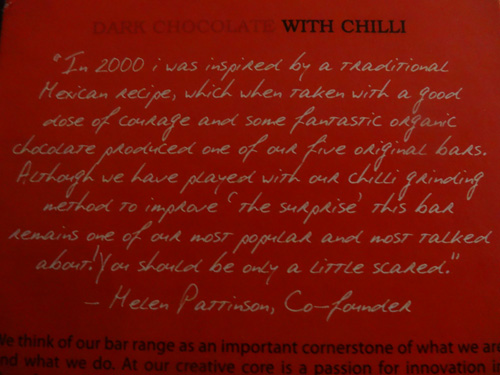 DARK CHOCOLATE WITH CHILLI
"In 2000 i was inspired by a traditional
Mexican recipe, which when taken with a good
dose of courage and some fantastic organic
chocolate produced one of our five original bars.
Although we have played with our chilli grinding
method to improve 'the surprise' this bar
remains one of our most popular and most talked
about! You should be only a little scared."
- Helen Pattinson, Co-founder
We think of our bar range as an important cornerstone of what we are
and what we do. At our creative core is a passion for innovation